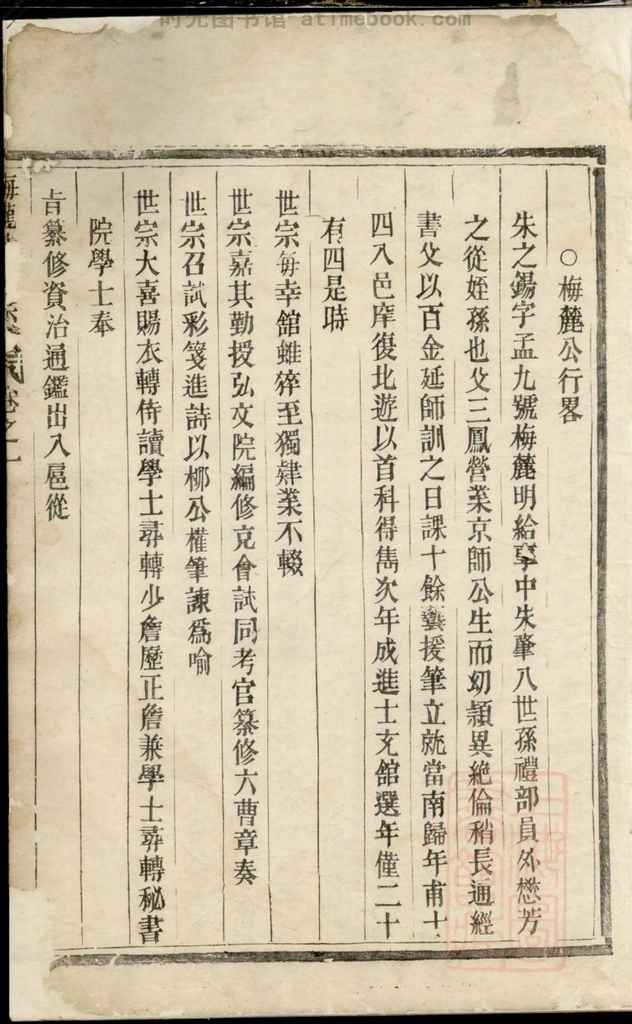 时光图书馆 - atimebook.com
○梅麓公行畧
朱之錫字孟九號梅麓明給事中朱肇八世孫禮部員外懋芳
之從姪孫也父三鳳營業京師公生而幼頴異絶倫稍長通經
書父以百金延師訓之日課十餘藝援筆立就當南歸年甫十
四入邑庠復北遊以首科得雋次年成進士充館選年僅二十
有四是時
世宗每幸館雖猝至獨肄業不輟
世宗嘉其勤授弘文院編修充會試同考官纂修六曹章奏
世宗召試彩箋進詩以柳公權筆諫爲喻
世宗大喜賜衣轉侍讀學士尋轉少詹歷正詹兼學士尋轉秘書
院學士奉
旨纂修資治通鑑出入扈從